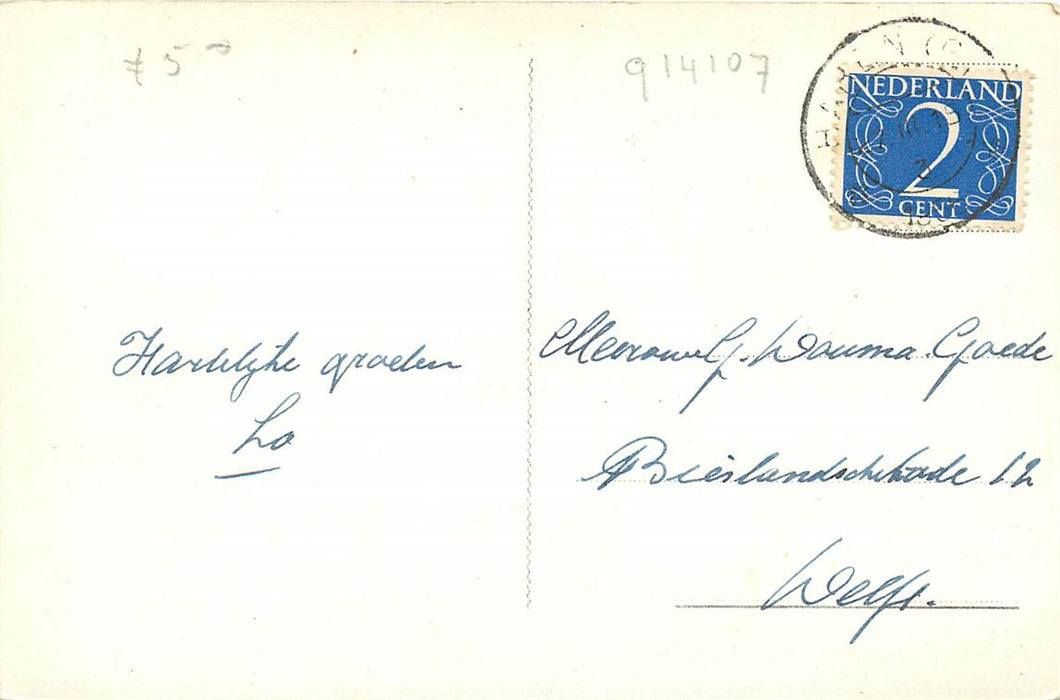 75
914107
HAREN (GR)
NEDERLAND
2
CENT
Hartelijke groeten
Lo
Mevrouw G. Douma. Goede
Bieslandschekade 12
Delft.